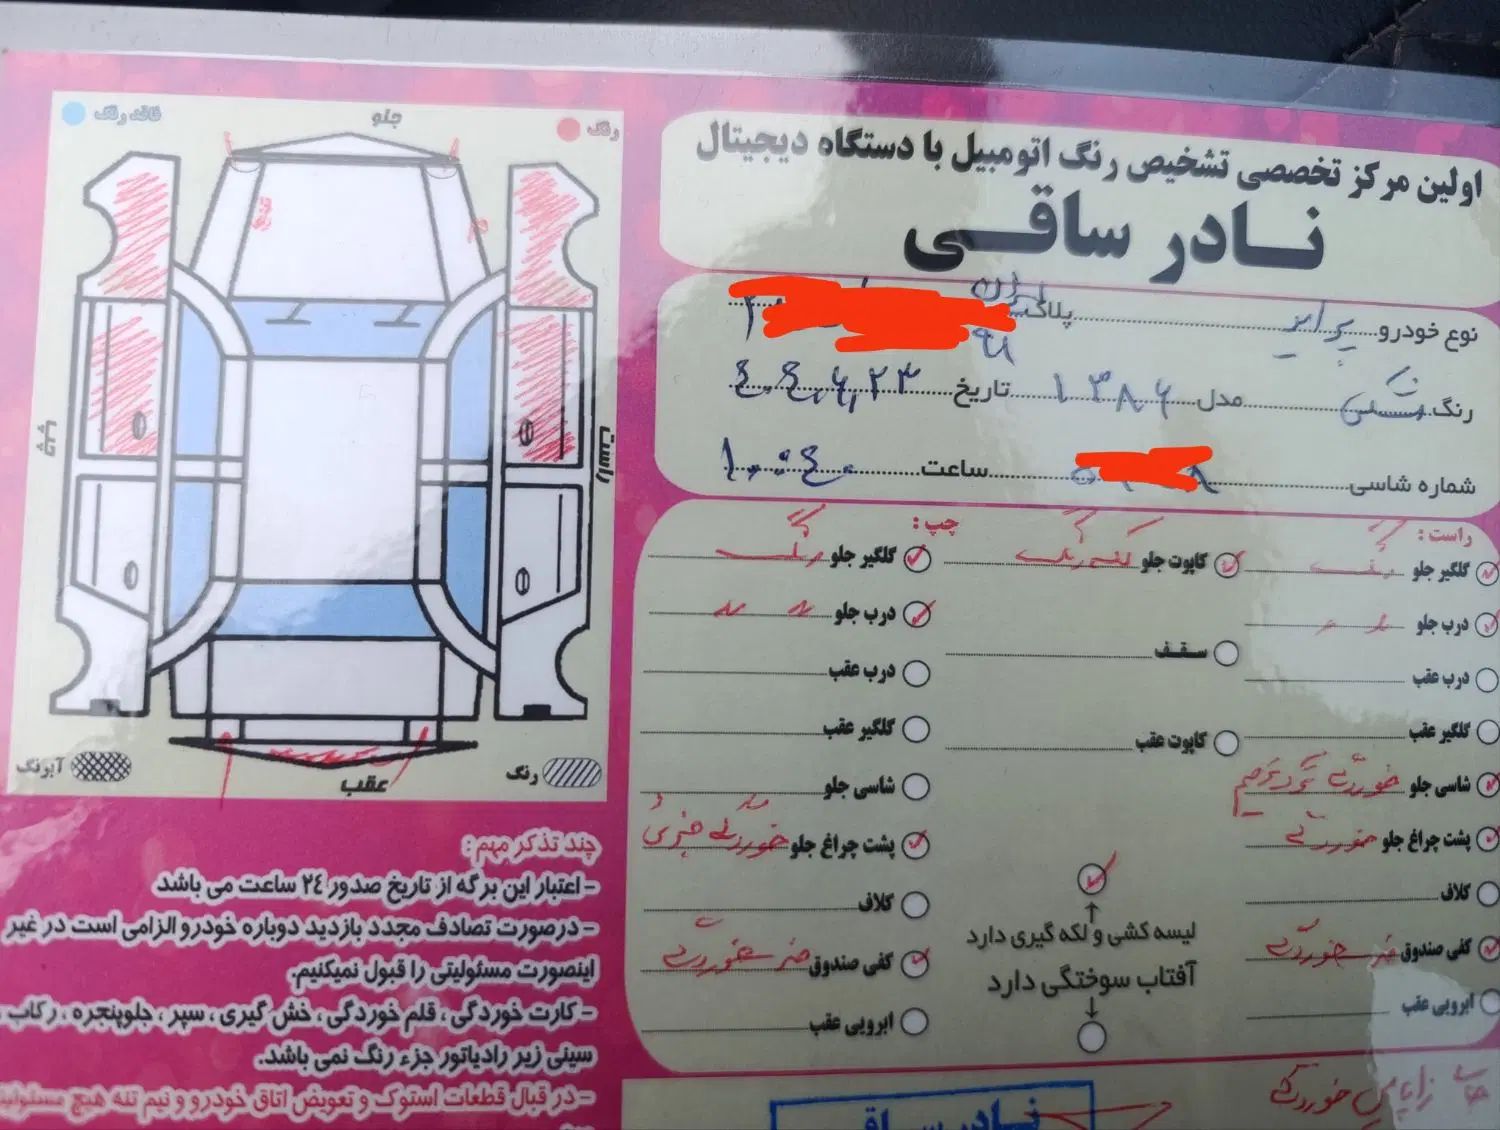 اولین مرکز تخصصی تشخیص رنگ اتومبیل با دستگاه دیجیتال
نادر ساقی
نوع خودرو پراید پلاک
رنگ مشکی مدل ۱۳۸۶ تاریخ ۴،۴،۶،۲۳
شماره شاسی ساعت ۱۰:۴۰
راست :
گلگیر جلو رنگ
درب جلو " "
درب عقب
گلگیر عقب
شاسی جلو خوردگی ترمیم
پشت چراغ جلو خوردگی
کلاف
کفی صندوق خوردگی
ابرویی عقب
کاپوت جلو لکه رنگ
سقف
کاپوت عقب
لیسه کشی و لکه گیری دارد
آفتاب سوختگی دارد
چپ :
گلگیر جلو رنگ
درب جلو " "
درب عقب
گلگیر عقب
شاسی جلو
پشت چراغ جلو خوردگی جزئی
کلاف
کفی صندوق خوردگی
ابرویی عقب
خوردگی
نادر ساقی
رنگ
فاقد رنگ
جلو
چپ
راست
عقب
رنگ
آبرنگ
چند تذکر مهم :
- اعتبار این برگه از تاریخ صدور ۲۴ ساعت می باشد
- درصورت تصادف مجدد بازدید دوباره خودرو الزامی است در غیر
اینصورت مسئولیتی را قبول نمیکنیم.
- کارت خوردگی ، قلم خوردگی ، خش گیری ، سپر ، جلوپنجره ، رکاب ،
سینی زیر رادیاتور جزء رنگ نمی باشد.
- در قبال قطعات استوک و تعویض اتاق خودرو و نیم تنه هیچ مسئولیت